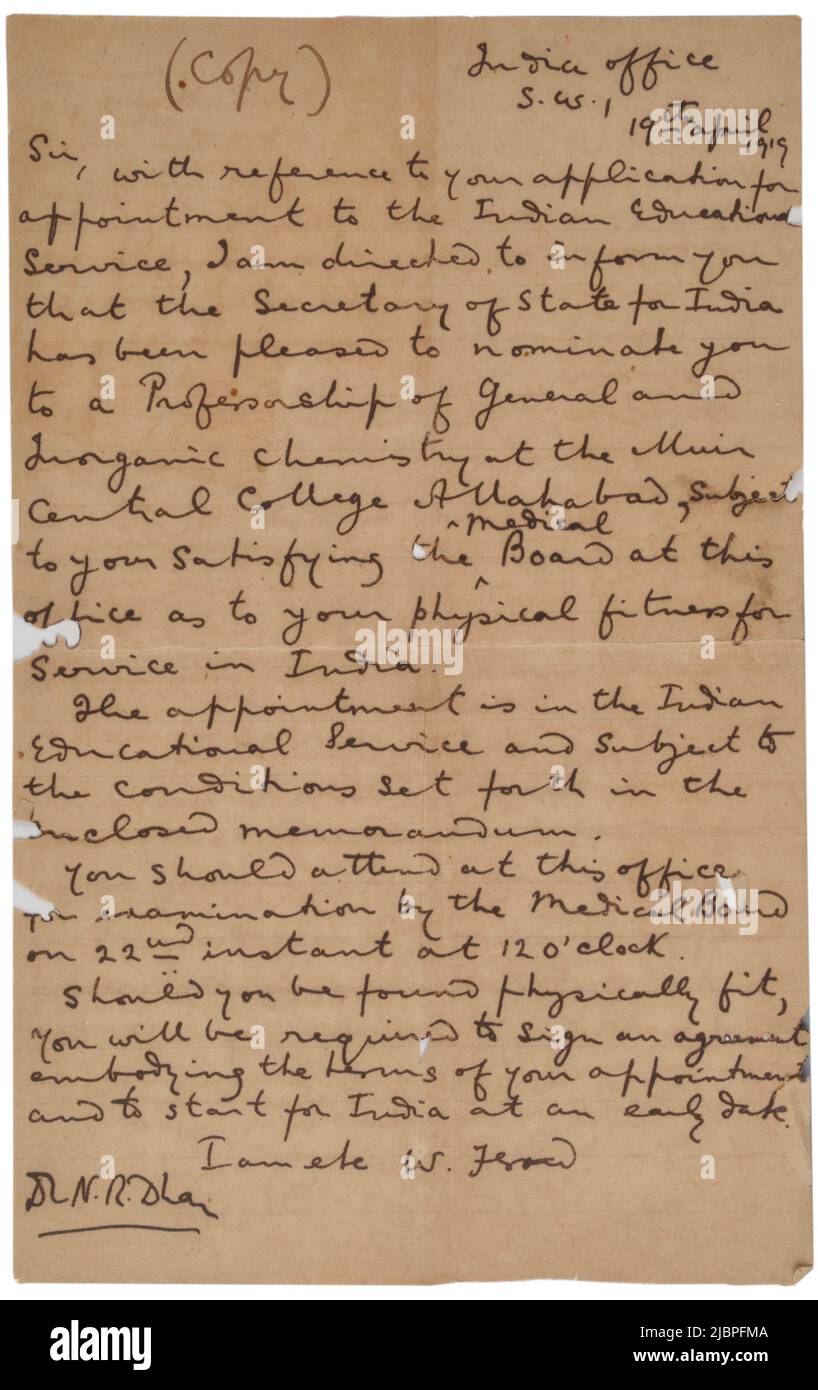 (Copy)
India office
S.W.1
19th April
1919
Sir, with reference to your application for
appointment to the Indian Educational
Service, I am directed to inform you
that the Secretary of State for India
has been pleased to nominate you
to a Professorship of General and
Inorganic Chemistry at the Muir
Central College Allahabad, subject
to your satisfying the ^Medical Board at this
office as to your physical fitness for
Service in India.
The appointment is in the Indian
Educational Service and subject to
the conditions set forth in the
enclosed memorandum.
You should attend at this office
for examination by the Medical Board
on 22nd instant at 12 o'clock.
Should you be found physically fit,
you will be required to sign an agreement
embodying the terms of your appointment
and to start for India at an early date.
I am etc W.
Dr N.R. Dhar
alamy
Image ID: 2JBPFMA
www.alamy.com